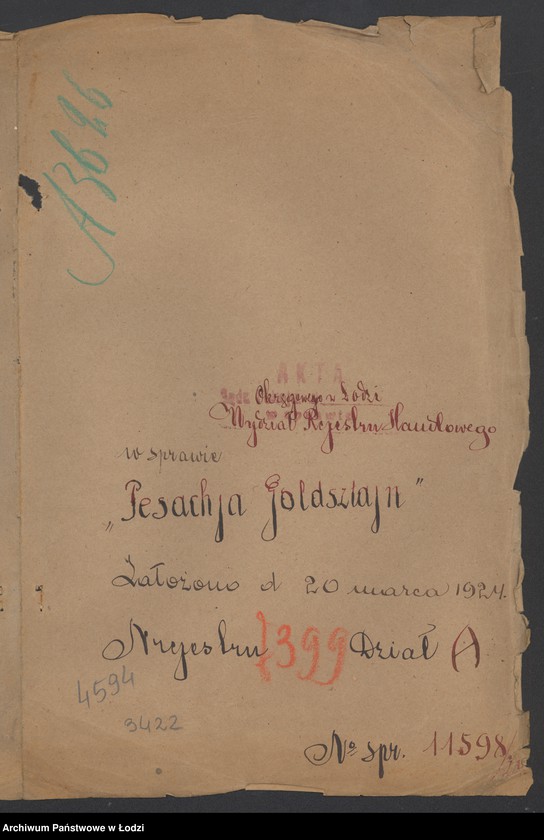 A 3626
AKTA
Sądu Okręgowego w Łodzi
Wydział Rejestru Handlowego
w sprawie
„Pesachja Goldsztajn"
Założono d 20 marca 1924.
Nr rejestru 7399 Dział A
4594
3422
№ spr. 11598
Archiwum Państwowe w Łodzi